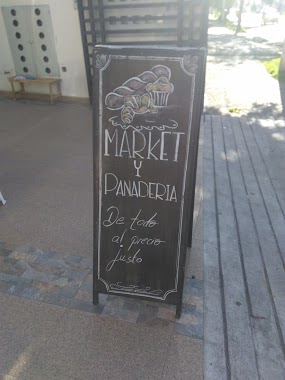 MARKET
Y
PANADERIA
De todo
al precio
justo